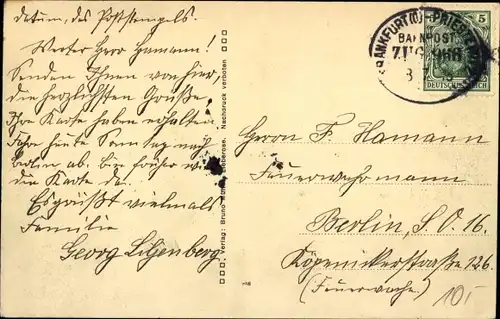 datum, des Poststempels.
Werter Herr Hamann!
Senden Ihnen von hier,
die herzlichsten Grüße.
Ihre Karte haben erhalten
Fahr heute Sonntag nach
Berlin ab. bin früher wie
die Karte da.
Es grüßt vielmals
Familie
Georg Liljenberg
Verlag: Bruno Nachdruck verboten
FRANKFURT (O)
BAHNPOST
ZUG
5
DEUTSCHES REICH
Herrn F. Hamann
Feuerwehrmann
Berlin, S. O. 16.
Köpenickerstraße 126.
(Feuerwache)
10,-